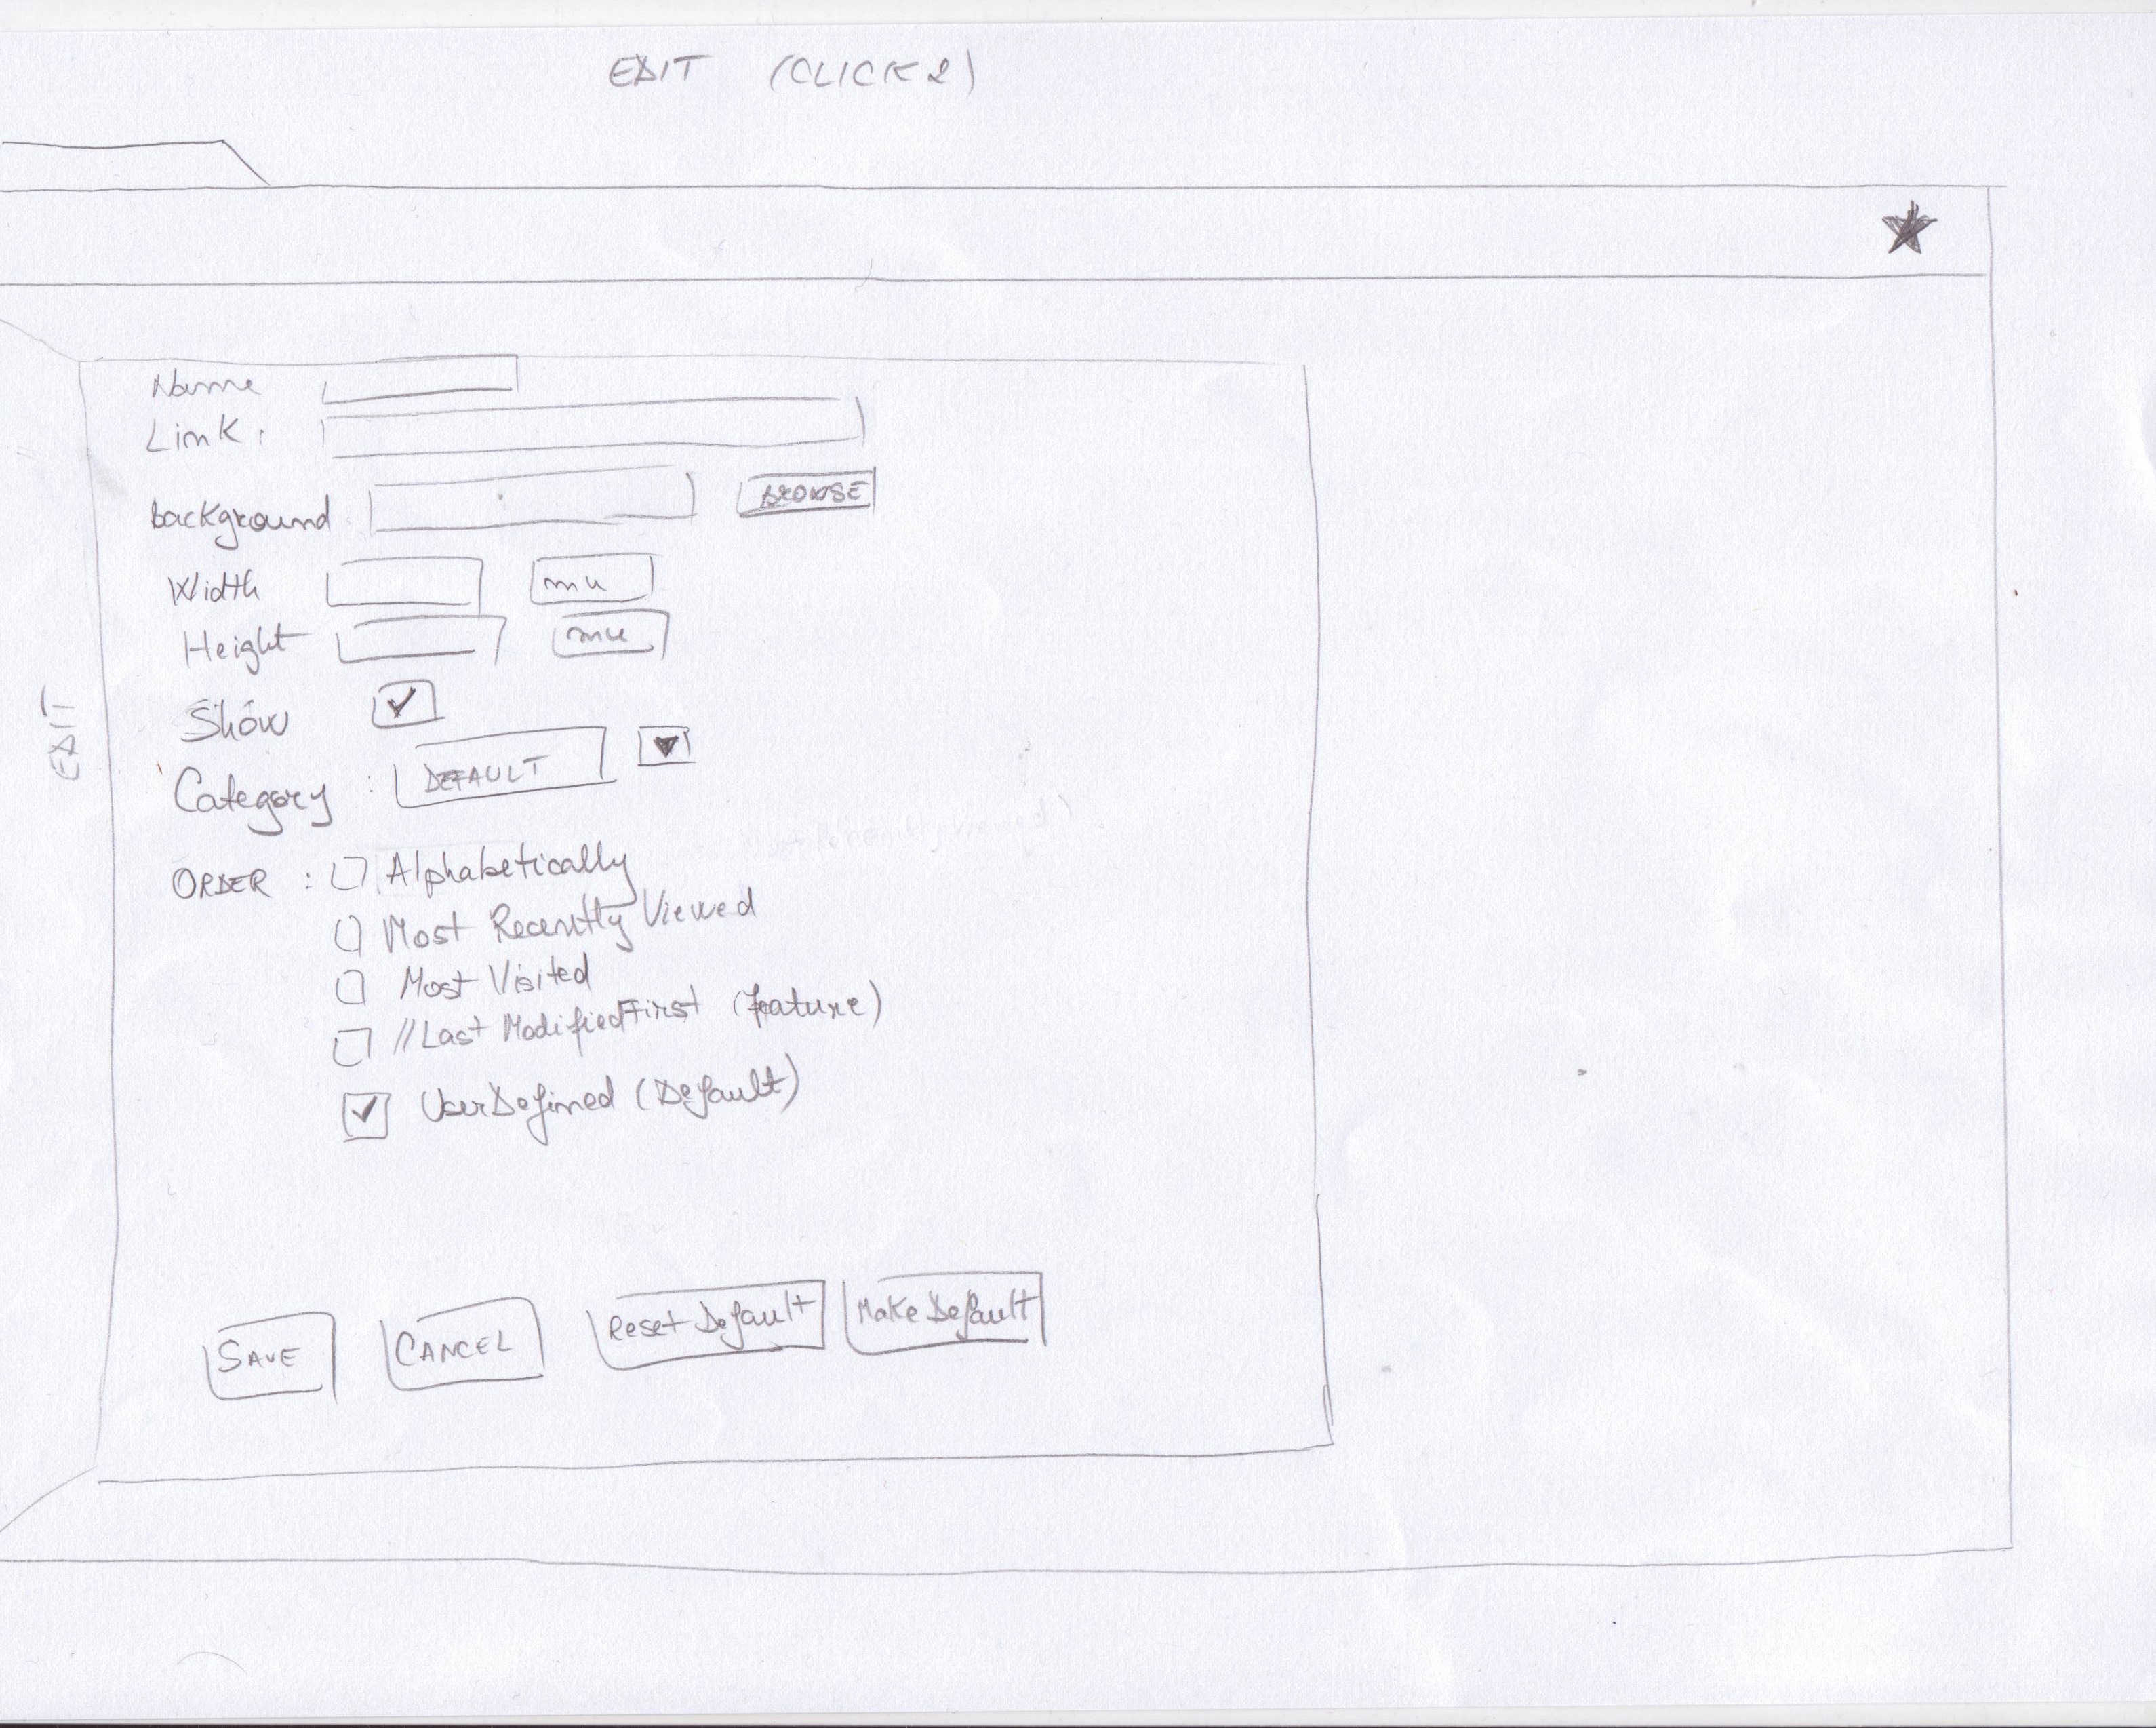 EDIT (CLICK 2)
Name
Link :
background BROWSE
Width mu
Height mu
Show
EDIT
Category : DEFAULT
ORDER : Alphabetically
Most Recently Viewed
Most Visited
//Last ModifiedFirst (feature)
UserDefined (Default)
SAVE CANCEL Reset Default Make Default